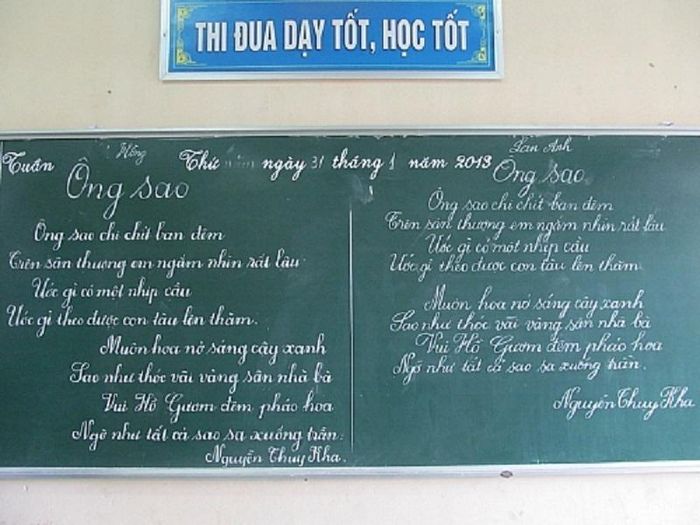 THI ĐUA DẠY TỐT, HỌC TỐT
Hồng
Lan Anh
Tuần Thứ ngày 31 tháng 1 năm 2013
Ông sao
Ông sao chi chít ban đêm
Trên sân thượng em ngắm nhìn rất lâu.
Ước gì có một nhịp cầu
Ước gì theo được con tàu lên thăm.
Muôn hoa nở sáng cây xanh
Sao như thóc vãi vàng sân nhà bà
Vui Hồ Gươm đêm pháo hoa
Ngỡ như tất cả sao sa xuống trần.
Nguyễn Thụy Kha.
Ông sao
Ông sao chi chít ban đêm
Trên sân thượng em ngắm nhìn rất lâu
Ước gì có một nhịp cầu
Ước gì theo được con tàu lên thăm.
Muôn hoa nở sáng cây xanh
Sao như thóc vãi vàng sân nhà bà
Vui Hồ Gươm đêm pháo hoa
Ngỡ như tất cả sao sa xuống trần.
Nguyễn Thụy Kha